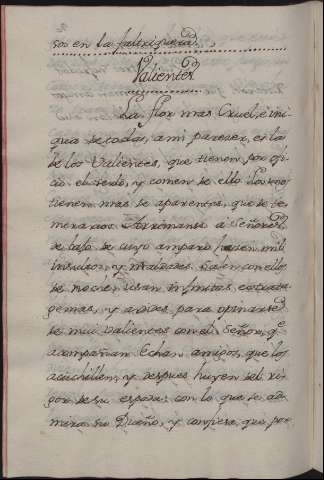 sos en la faltriquera,
Valientes
La flor mas Cruel, è ini
qua de todas, a mi pareser, es la
de los Valientes, que tienen por ofi
cio el serlo, y comen de ello
tienen mas de aparentes, que de te
merarios. Arrimanse à Señores
de cuio amparo hacen mil
insultos, y maldades. Salen con ellos
de noche, usan infinitas estrata
gemas, y ardides para opinarse
de mui valientes con el Señor, q.e
acompañan. Echan amigos, que los
acuchillen, y despues huyen del ri
gor de su espada: con lo que se ad
mira su Dueño, y confiesa, que por